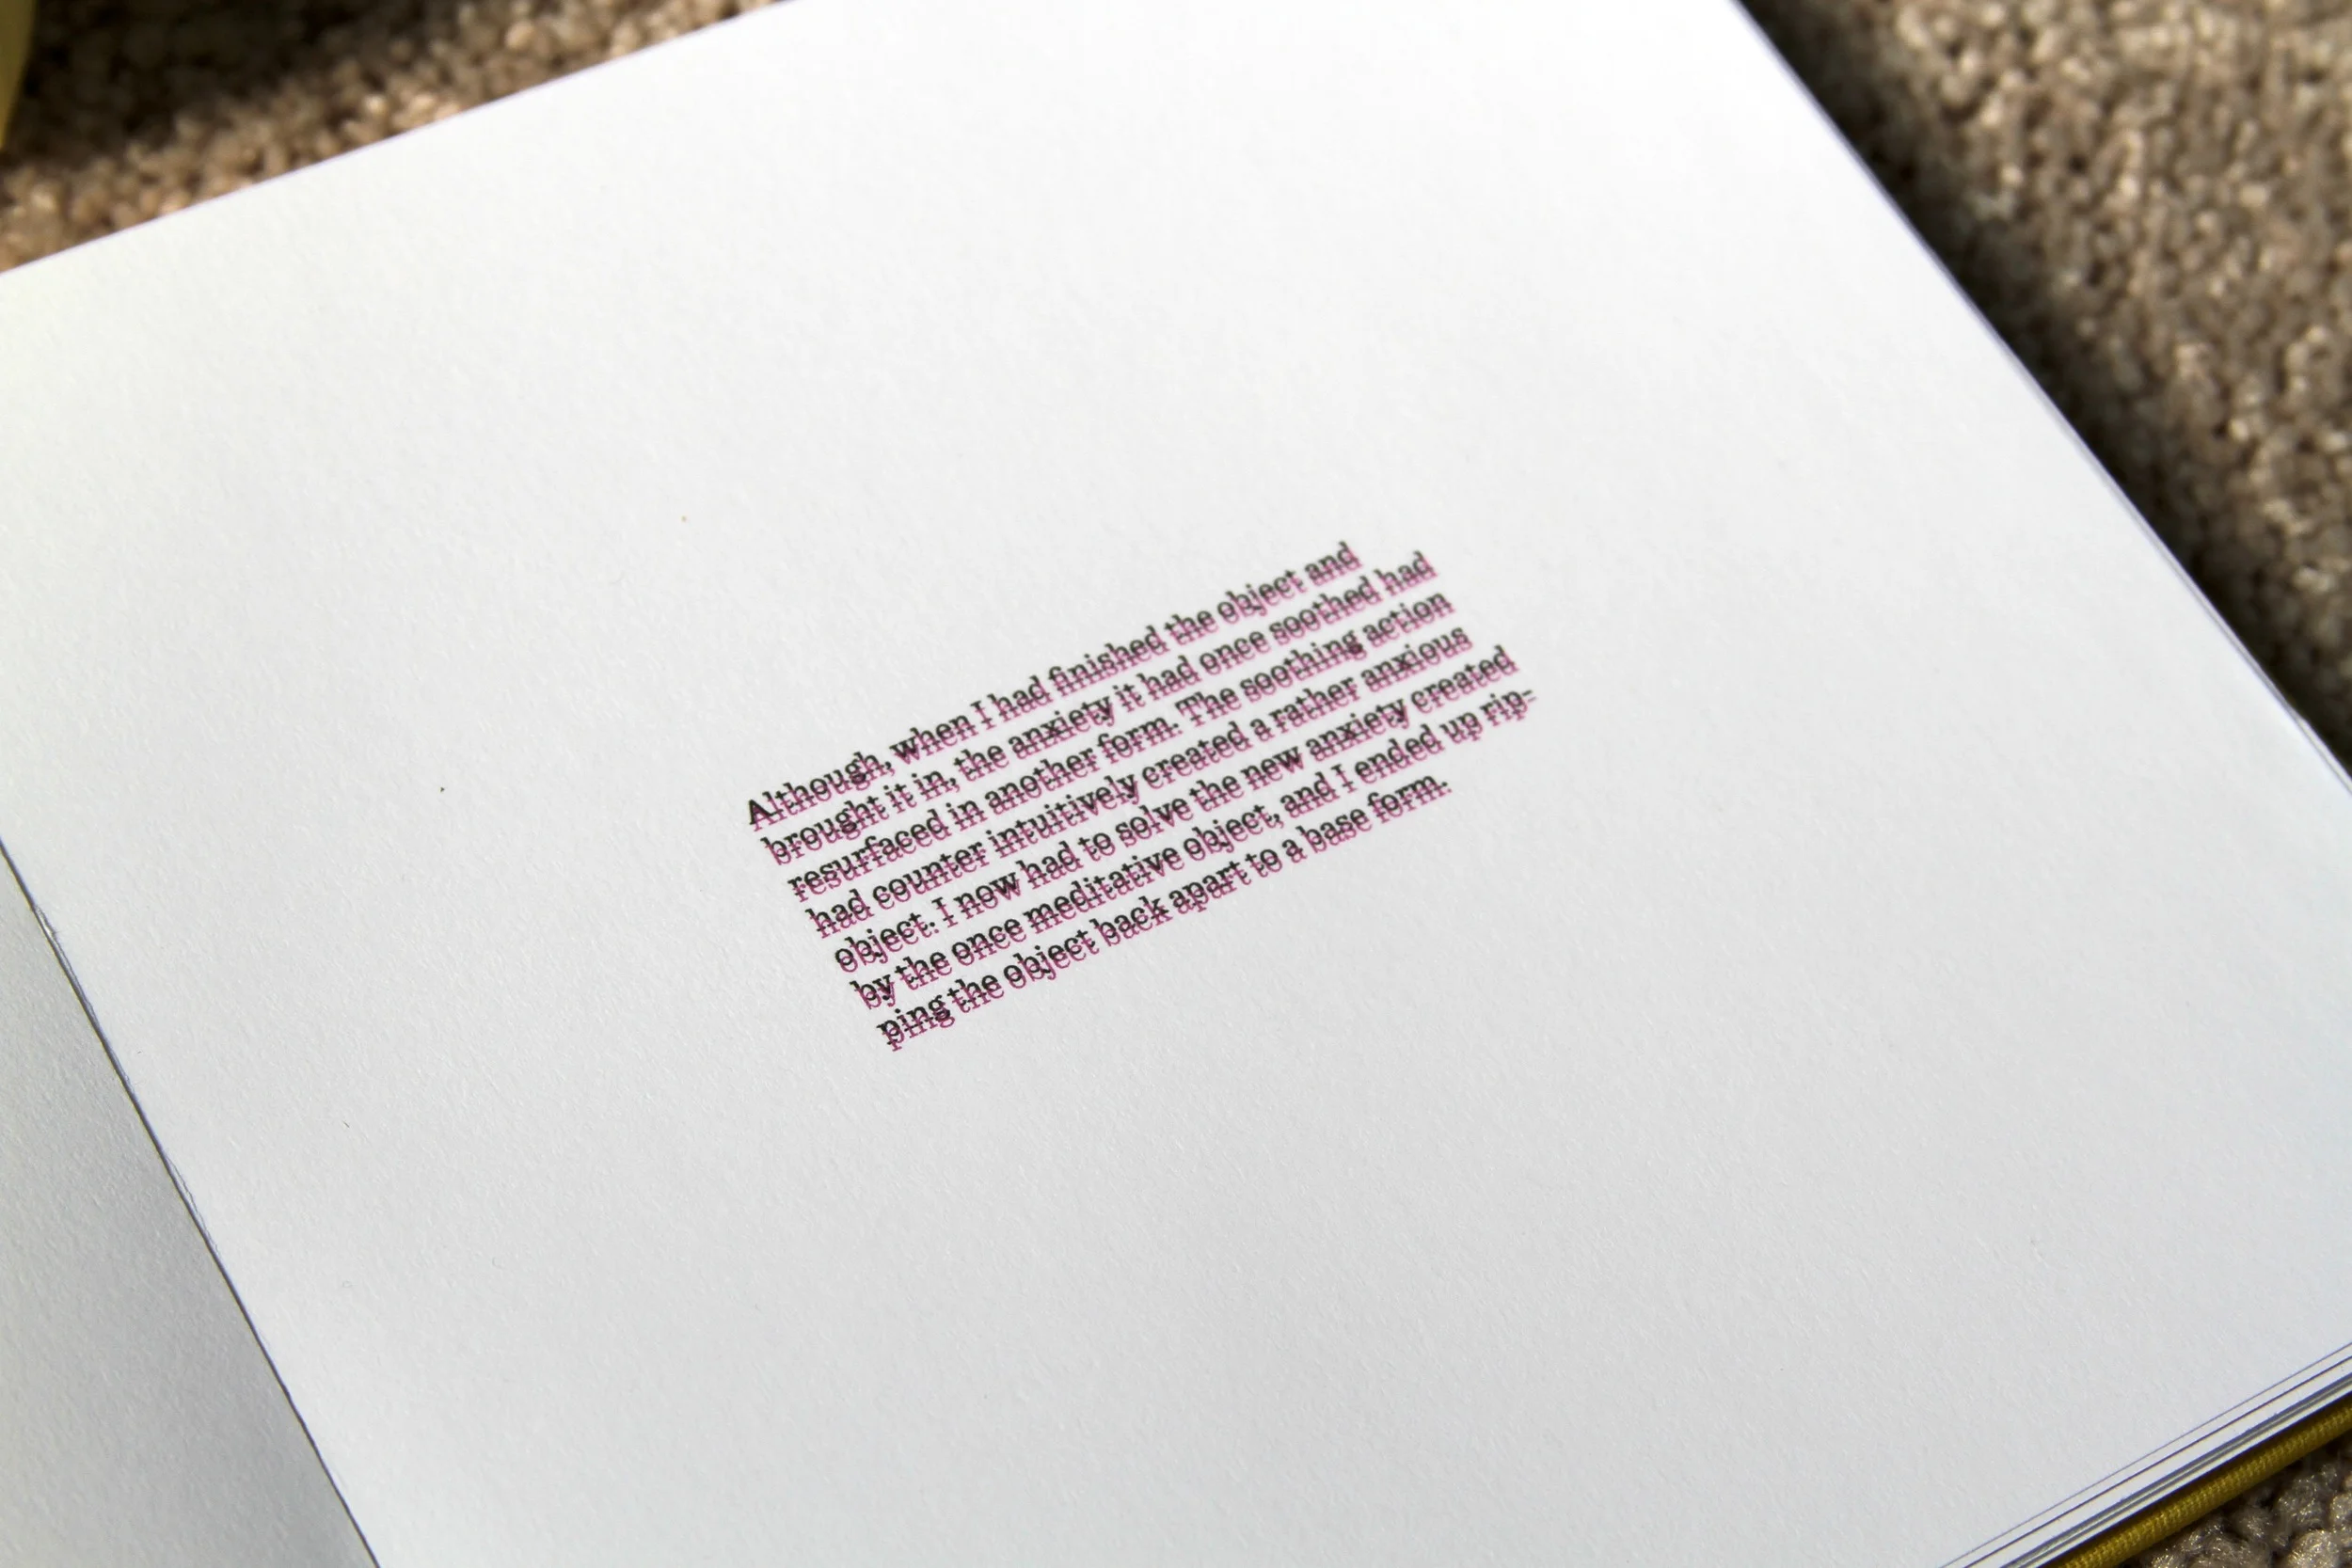 Although, when I had finished the object and
brought it in, the anxiety it had once soothed had
resurfaced in another form. The soothing action
had counter intuitively created a rather anxious
object. I now had to solve the new anxiety created
by the once meditative object, and I ended up rip-
ping the object back apart to a base form.